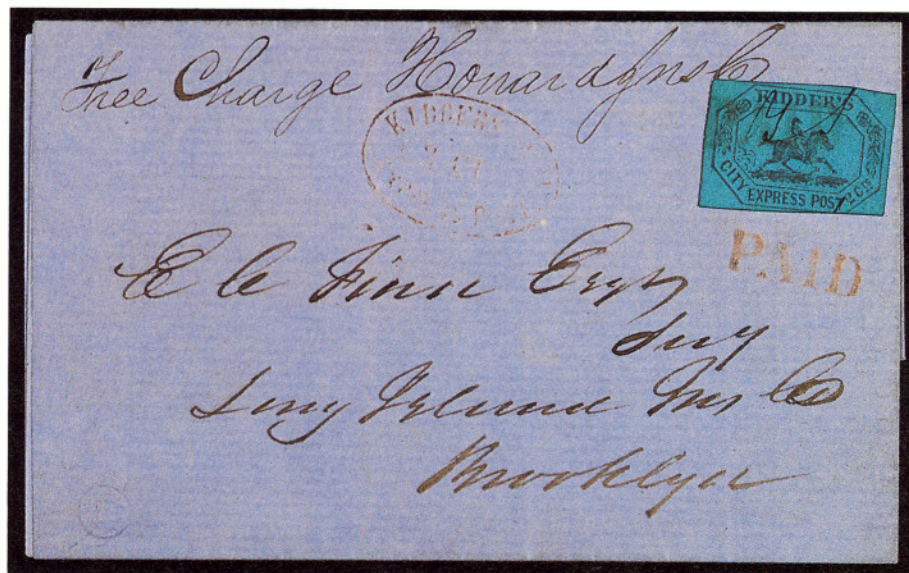 Free Charge Howard Ins Co
KIDDER'S
17
KIDDER'S
CITY EXPRESS POST 2 CTS
PAID
E C Finn Esqr
Secy
Long Island Ins Co
Brooklyn